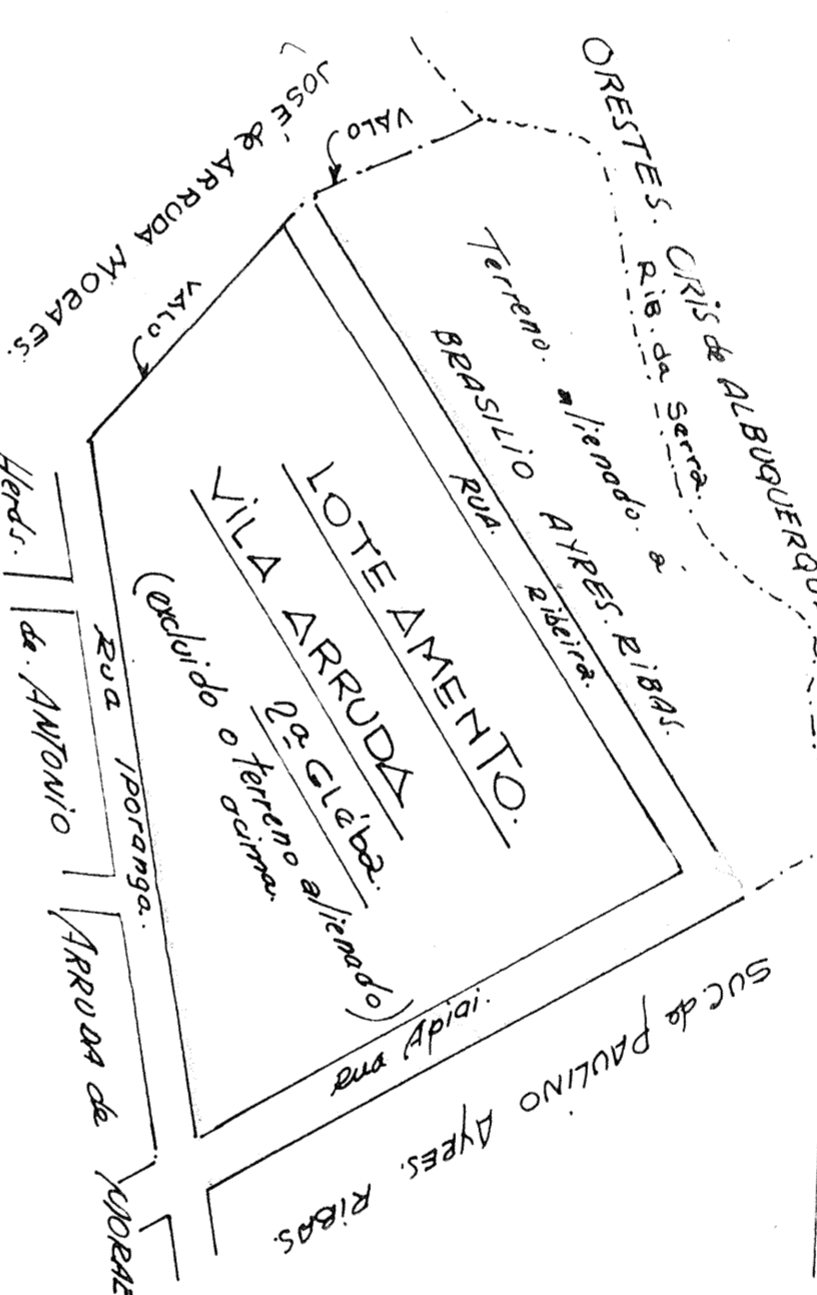 ORESTES. ORIS de ALBUQUERQU
RIB. da Serra.
JOSÉ de ARRUDA MORAES.
VALO
VALO
Terreno. alienado. a
BRASILIO AYRES. RIBAS.
RUA. Ribeira.
LOTEAMENTO.
VILA ARRUDA
2ª Gléba.
(excluido o terreno alienado)
acima.
Rua Iporanga.
Rua Apiai.
Herds. de. ANTONIO ARRUDA de MORAE
SUC. de PAULINO AYRES. RIBAS.